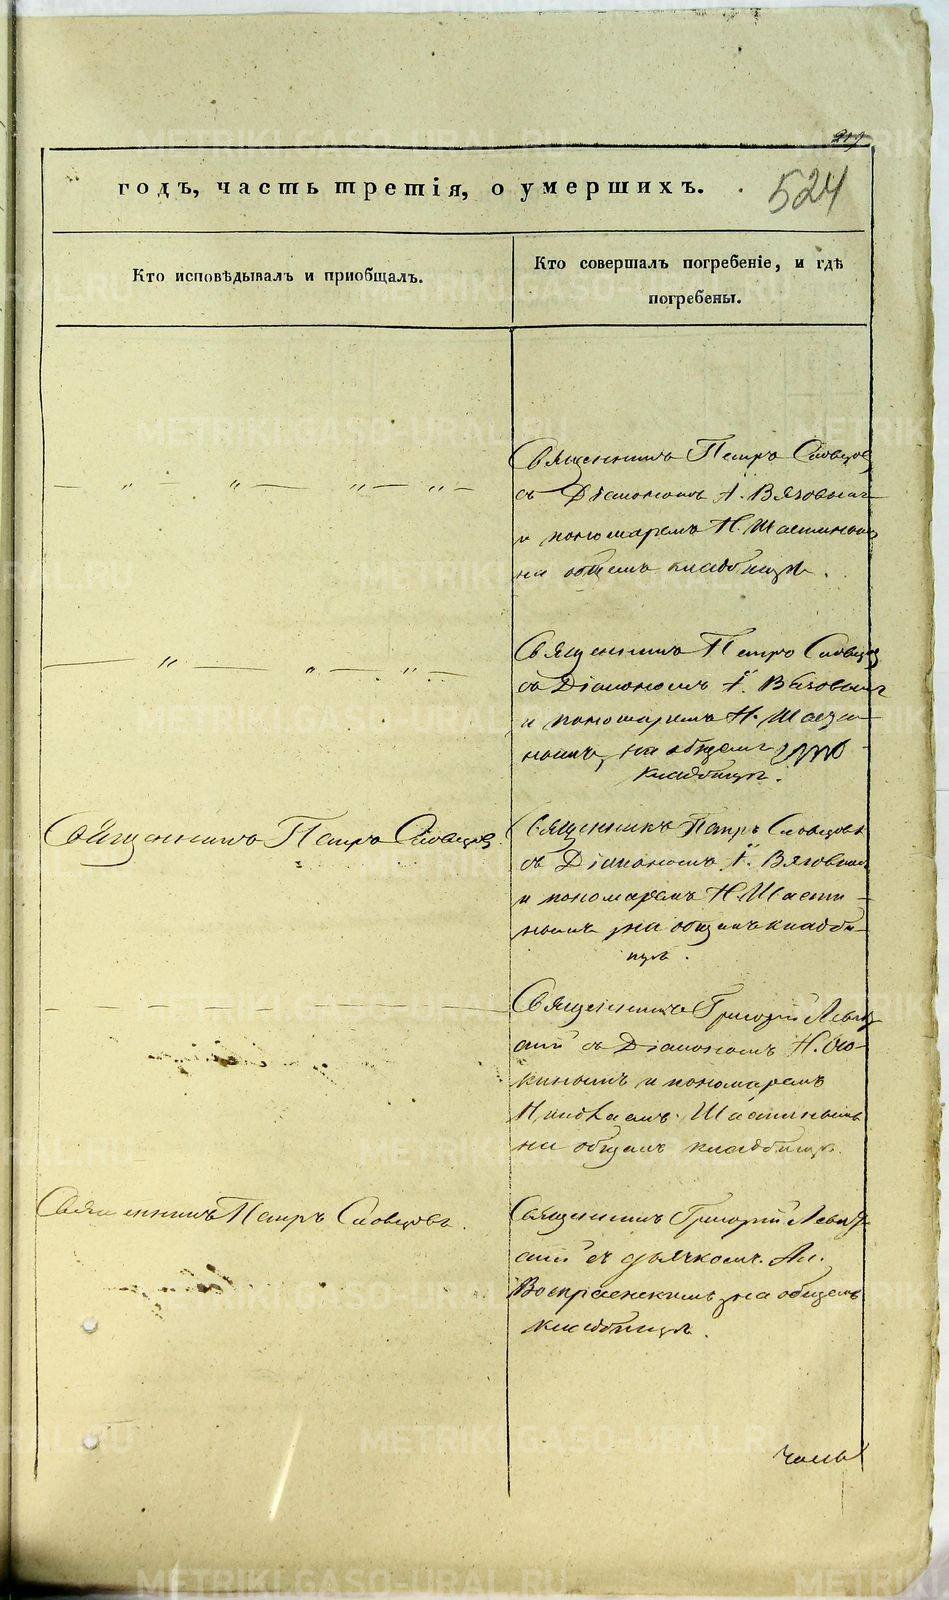 219
годъ, часть третія, о умершихъ.
524
Кто исповѣдывалъ и пріобщалъ.
Кто совершалъ погребеніе, и гдѣ
погребены.
— „ „ — „ — „ —
Священникъ Петръ Словцов
съ Діакономъ І. Вязовымъ
и пономаремъ Н. Шастинымъ
на общемъ кладбищѣ.
— „ — „ — „ —
Священникъ Петръ Словцов
съ Діакономъ І. Вязовымъ
и пономаремъ Н. Шасти-
нымъ, на общемъ
кладбищѣ.
Священникъ Петръ Словцов
Священникъ Петръ Словцовъ
съ Діакономъ І. Вязовым
и пономаремъ Н. Шасти-
нымъ на общемъ кладби-
щѣ.
Священникъ Григорій Левиц-
кій съ Діакономъ Н.
кинымъ и пономаремъ
Николаемъ Шастинымъ
на общемъ кладбищѣ.
Священникъ Петръ Словцовъ.
Священникъ Григорій Левиц-
кій съ дьячкомъ Ал.
Воскресенскимъ на общемъ
кладбищѣ.